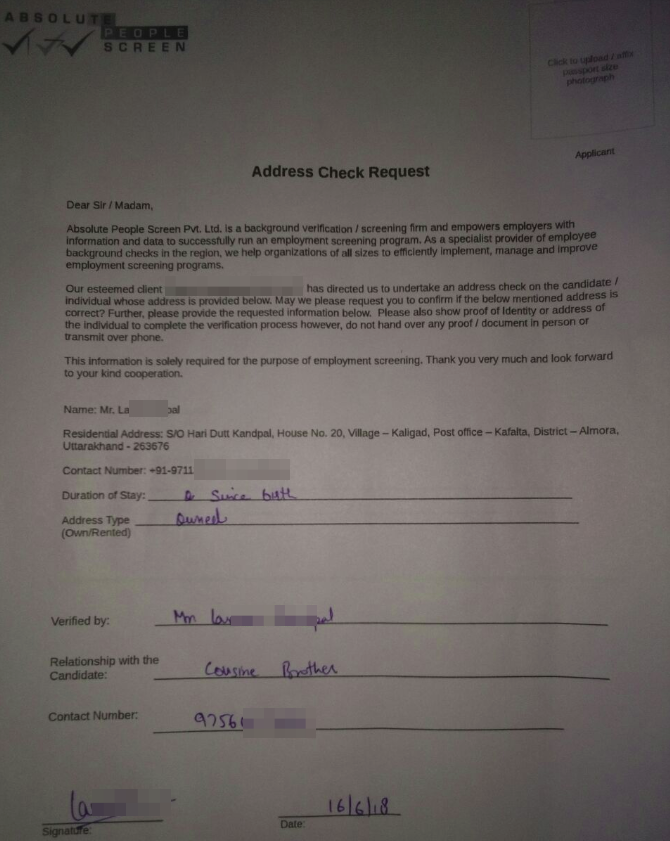 ABSOLUTE
PEOPLE
SCREEN
Click to upload / affix
passport size
photograph
Applicant
Address Check Request
Dear Sir / Madam,
Absolute People Screen Pvt. Ltd. is a background verification / screening firm and empowers employers with
information and data to successfully run an employment screening program. As a specialist provider of employee
background checks in the region, we help organizations of all sizes to efficiently implement, manage and improve
employment screening programs.
Our esteemed client has directed us to undertake an address check on the candidate /
individual whose address is provided below. May we please request you to confirm if the below mentioned address is
correct? Further, please provide the requested information below. Please also show proof of Identity or address of
the individual to complete the verification process however, do not hand over any proof / document in person or
transmit over phone.
This information is solely required for the purpose of employment screening. Thank you very much and look forward
to your kind cooperation.
Name: Mr. La pal
Residential Address: S/O Hari Dutt Kandpal, House No. 20, Village – Kaligad, Post office – Kafalta, District – Almora,
Uttarakhand - 263676
Contact Number: +91-9711
Duration of Stay: Since birth
Address Type Owned
(Own/Rented)
Verified by:
Relationship with the
Candidate: Cousine Brother
Contact Number: 9756
Signature:
16/6/18
Date: